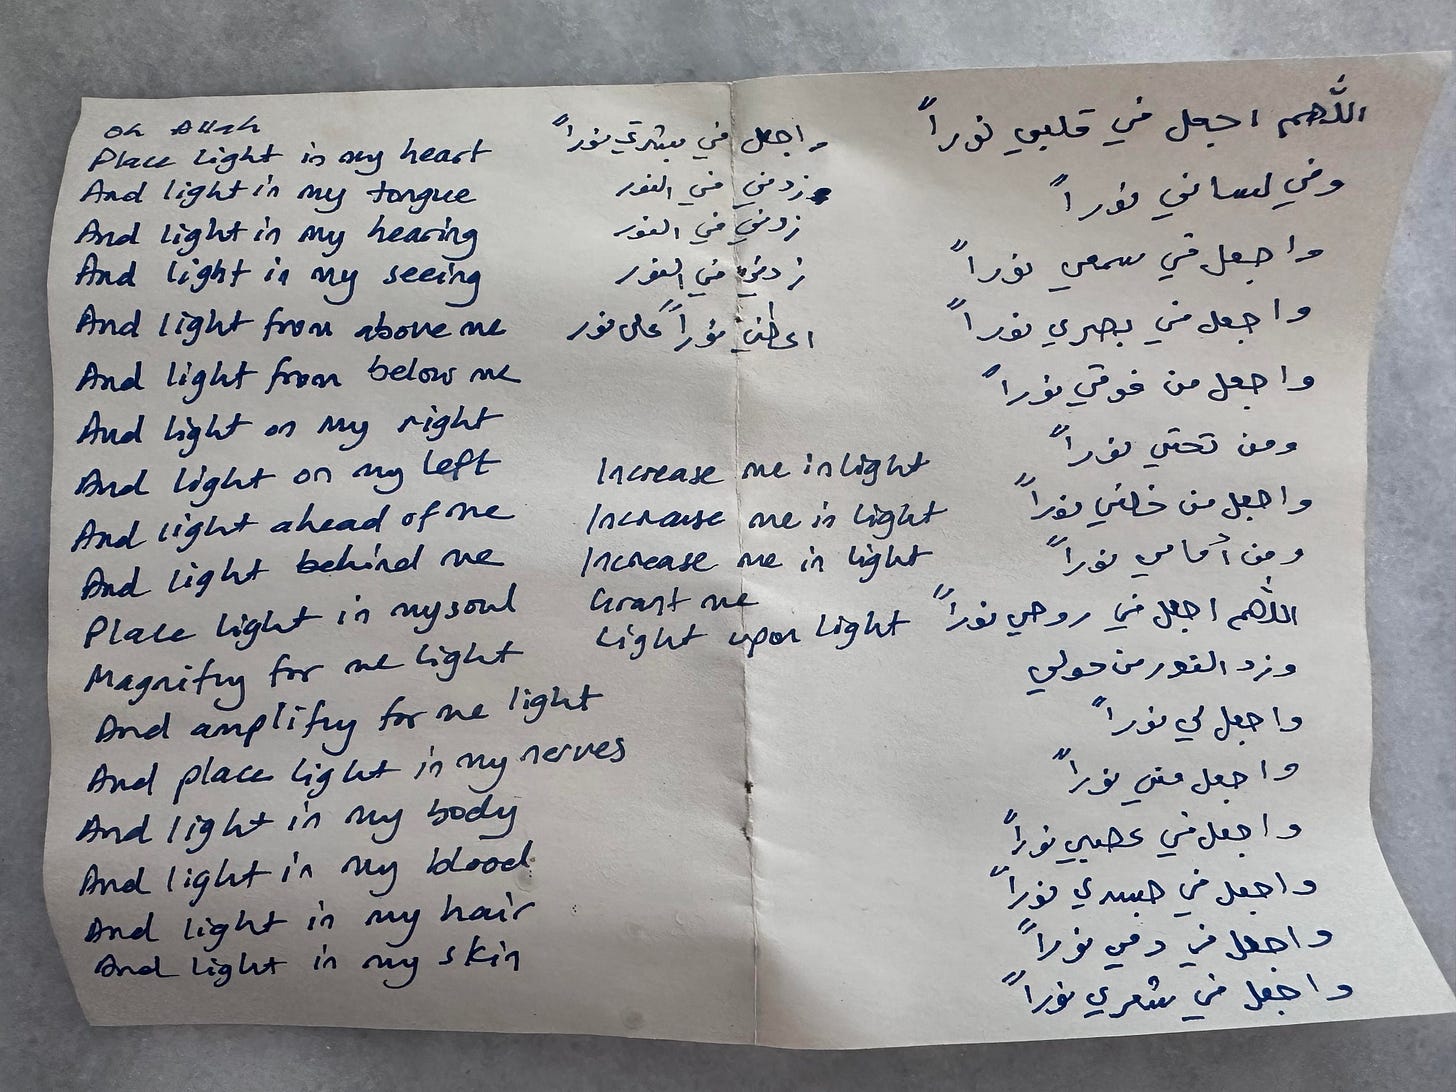 Oh Allah
Place light in my heart
And light in my tongue
And light in my hearing
And light in my seeing
And light from above me
And light from below me
And light on my right
And light on my left
And light ahead of me
And light behind me
Place light in my soul
Magnifiy for me light
And amplifiy for me light
And place light in my nerves
And light in my body
And light in my blood
And light in my hair
And light in my skin
Increase me in light
Increase me in light
Increase me in light
Grant me
Light upon light
اللّهم اجعل في قلبي نوراً
وفي لساني نوراً
واجعل في سمعي نوراً
واجعل في بصري نوراً
واجعل من فوقي نوراً
ومن تحتي نوراً
واجعل من خلفي نوراً
ومن أمامي نوراً
اللّهم اجعل في روحي نوراً
وزد النور من حولي
واجعل لي نوراً
واجعل مني نوراً
واجعل في عصبي نوراً
واجعل في جسدي نوراً
واجعل في دمي نوراً
واجعل في شعري نوراً
واجعل في بشرتي نوراً
وزدني في النور
زدني في النور
زدني في النور
اعطني نوراً على نور